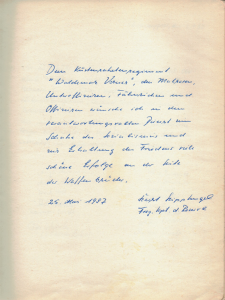 Dem Küstenschutzregiment
"Waldemar Verner", den Matrosen,
Unteroffizieren, Fähnrichen und
Offizieren wünsche ich in dem
verantwortungsvollen Dienst zum
Schutze des Sozialismus und
zur Erhaltung des Friedens viele
schöne Erfolge an der Seite
der Waffenbrüder.
26. Mai 1987
Freg. Kpt. d. Reserve